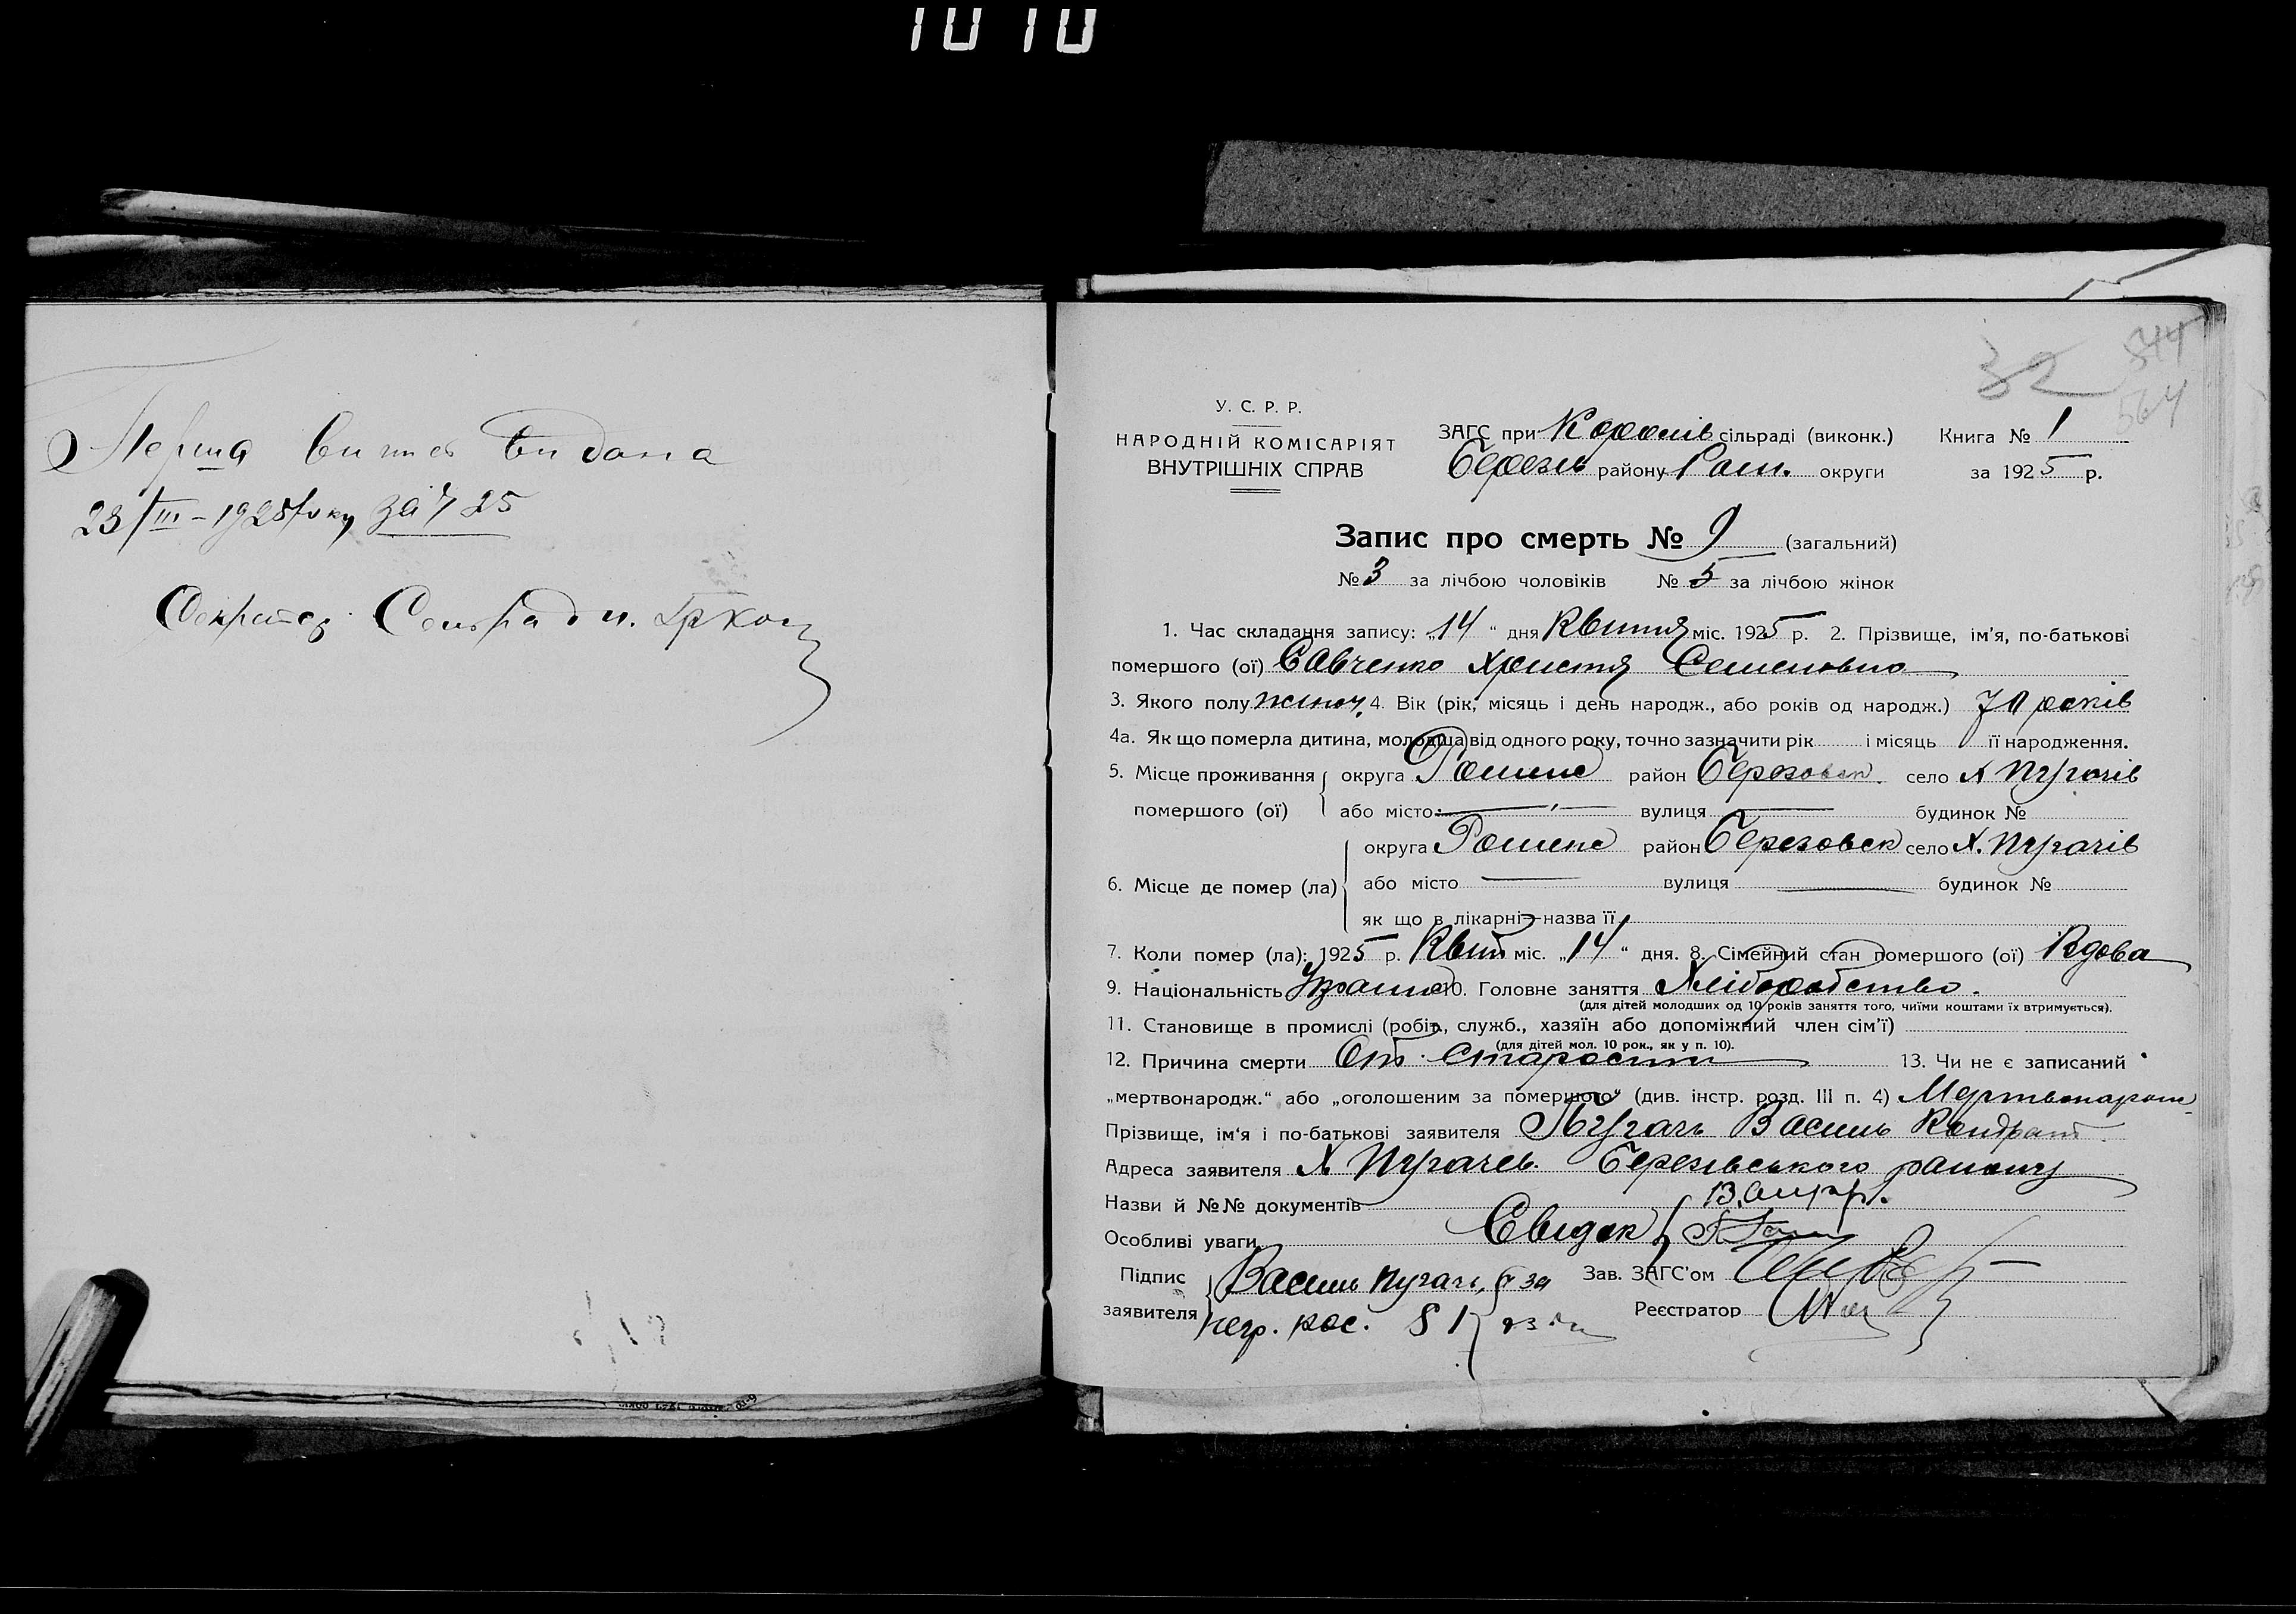 1010
Перша випись видана
23/III - 1925 року за № 25
Секретар Сельради
32 544
564
У. С. Р. Р.
НАРОДНІЙ КОМІСАРІЯТ
ВНУТРІШНІХ СПРАВ
ЗАГС при сільраді (виконк.)
Березів району Ром. округи
Книга № 1
за 1925 р.
Запис про смерть № 9 (загальний)
№ 3 за лічбою чоловіків № 5 за лічбою жінок
1. Час складання запису: „14“ дня Квітня міс. 1925 р. 2. Прізвище, ім'я, по-батькові
помершого (ої) Савченко Христя Семеновна
3. Якого полу жіноч. 4. Вік (рік, місяць і день народж., або років од народж.) 70 років
4а. Як що померла дитина, молодша від одного року, точно зазначити рік і місяць її народження.
5. Місце проживання округа Роменс район Березовск. село Х Пугачів
помершого (ої) або місто: вулиця будинок №
округа Роменс район Березовск село Х. Пугачів
6. Місце де помер (ла) або місто вулиця будинок №
як що в лікарні—назва її
7. Коли помер (ла): 1925 р. Квіт міс. „14“ дня. 8. Сімейний стан помершого (ої) Вдова
9. Національність 10. Головне заняття Хліборобство.
(для дітей молодших од 10 років заняття того, чиїми коштами їх втримується).
11. Становище в промислі (робіт., служб., хазяїн або допоміжний член сім'ї)
(для дітей мол. 10 рок., як у п. 10).
12. Причина смерти От старости 13. Чи не є записаний
„мертвонародж.“ або „оголошеним за помершого“ (див. інстр. розд. III п. 4)
Прізвище, ім'я і по-батькові заявителя Пугачь Василь Кондрат.
Адреса заявителя Х Пугачев. Березівського району
Назви й №№ документів
Особливі уваги Свідок
Підпис Василь Пугачь, а за Зав. ЗАГС'ом
заявителя негр. рос. Реєстратор